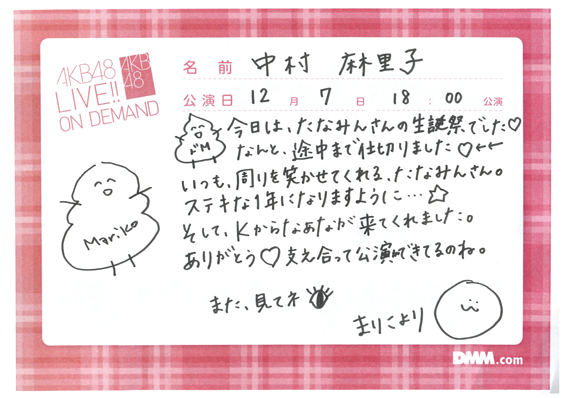 AKB48
LIVE!!
ON DEMAND
AKB
48
名前 中村 麻里子
公演日 12月7日 18:00公演
ドM
今日は、たなみんさんの生誕祭でした♡
なんと、途中まで仕切りました♡←←
いつも、周りを笑かせてくれる、たなみんさん。
ステキな1年になりますように…☆
そして、Kからなぁなが来てくれました。
ありがとう♡支え合って公演ができてるのね。
また、見てネ
まりこより
Mariko
DMM.com